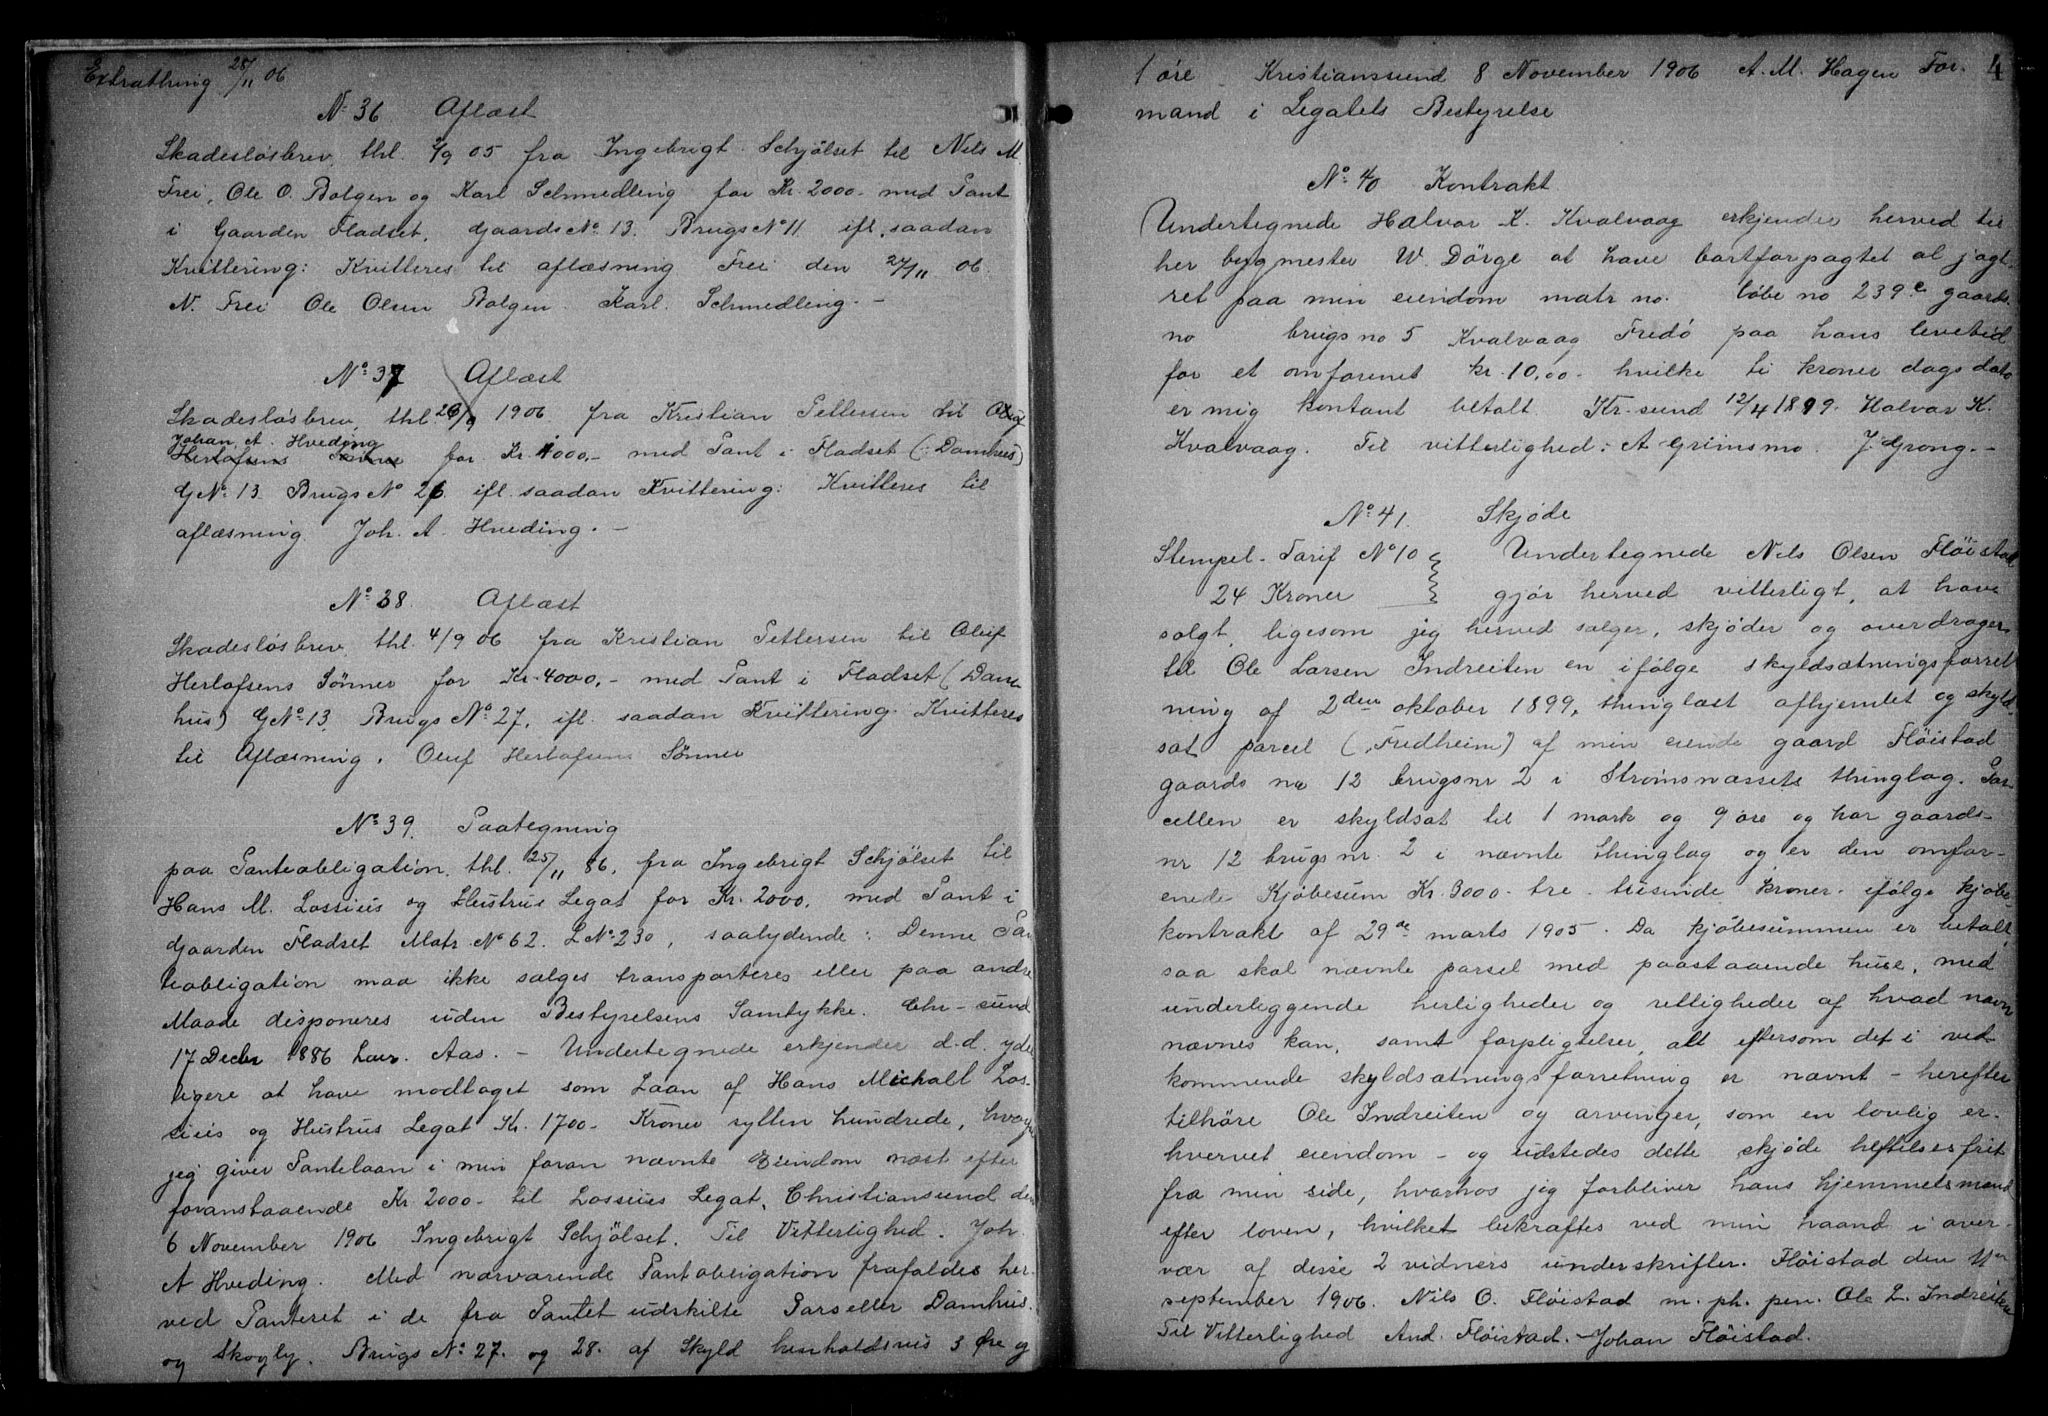 Extrathing 28/11 06
No 36 Aflæst
Skadesløsbrev, thl. 4/9 05 fra Ingebrigt Schjölset til Nels M.
Frei, Ole O. Bolgen og Karl Schmedling for Kr. 2000.- med Pant
i Gaarden Fladset, Gaards No. 13. Brugs No 11 ifl. saadan
Kvittering: Kvitteres til aflæsning Frei den 27/11 06.
N. Frei Ole Olsen Bolgen. Karl. Schmedling. -
No 37 Aflæst
Skadesløsbrev, thl. 1906. fra Kristian Pettersen til Oluf
Johan. A. Hveding
Herlofsens Sönner for Kr. 1000,- med Pant i Fladset (: Damhus)
GNo. 13. Brugs No 26. ifl. saadan Kvittering: Kvitteres til
aflæsning. Joh. A. Hveding. -
No 38. Aflæst
Skadesløsbrev, thl. 4/9 06 fra Kristian Pettersen til Oluf
Herlofsens Sönner for Kr. 4000,- med Pant i Fladset (Dam-
hus) GNo. 13. Brugs No. 27, ifl. saadan Kvittering. Kvitteres
til Aflæsning. Oluf Herlofsens Sönner
No 39. Paategning
paa Panteobligation, thl. 25/11 86, fra Ingebrigt Schjölset til
Hans M. Lossius og Hustrus Legat for Kr. 2000, med Pant i
Gaarden Fladset Matr No 62. LNo. 230, saalydende: Denne Pan
teobligation maa ikke sælges transporteres eller paa andre
Maade disponeres uden Bestyrelsens Samtykke. Chr-sund
17 Decbr 1886 Laur. Aas. - Undertegnede erkjender d.d. yder
ligere at have modtaget som Laan af Hans Michall Los-
sius og Hustrus Legat Kr. 1700- Kroner sytten hundrede, hvor
jeg giver Pantelaan i min foran nævnte Eiendom næst efter
foranstaaende Kr. 2000- til Lossius Legat. Christiansund den
6 November 1906 Ingebrigt Schjölset. Til Vitterlighed. Joh.
A Hveding. Med nærværende Pantobligation frafaldes her-
ved Panteret i de fra Pantet udskilte Parseller Damhus.
og Skogly. Brugs No. 27. og 28. af Skyld henholdsvis 3 Øre og
4
1 øre Kristianssund 8 November 1906 A. M. Hagen For-
mand i Legatets Bestyrelse
No. 40 Kontrakt
Undertegnede Halvor K. Kvalvaag erkjender herved til
her bygmester W. Dörge at have bortforpagtet al jagt-
ret paa min eiendom matr no. løbe no 239 e gaards
no brugs no 5 Kvalvaag Fredö paa hans levetid
for et omforenet kr. 10,00- hvilke ti kroner dags dato
er mig kontant betalt. Kr. sund 12/4 1899. Halvor K.
Kvalvaag. Til vitterlighed: A Grimsmo. J. Grong. -
No. 41. Skjøde
Stempel-Tarif No 10 Undertegnede Nils Olsen Flöistad
24 Kroner gjør herved vitterligt, at have
solgt, ligesom jeg herved sælger, skjøder og overdrager
til Ole Larsen Indreiten en ifölge skyldsætningsforret
ning af 2den oktober 1899, thinglæst afhjemlet og skyld-
sat parcel ("Fredheim") af min eiende gaard Flöistad
gaards no 12 brugsnr 2 i Strömsnæssets thinglag. Par-
cellen er skyldsat til 1 mark og 9 øre og har gaards-
nr 12 brugs nr. 2 i nævnte thinglag og er den omfor-
enede Kjöbesum Kr. 3000- tre- tusinde kroner- ifölge kjöbe-
kontrakt af 29de marts 1905. Da kjöbesummen er betalt,
saa skal nævnte parsel med paastaaende huse, med
underliggende herligheder og rettigheder af hvad navn
nævnes kan, samt forpligtelser, alt eftersom det i ved-
kommende skyldsætningsforretning er nævnt - herefter
tilhöre Ole Indreiten og arvinger, som en lovlig er-
hvervet eiendom - og udstedes dette skjøde heftelsesfrit
fra min side, hvorhos jeg forbliver hans hjemmelsmand
efter loven, hvilket bekræftes ved min haand i over-
vær af disse 2 vidners underskrifter. Flöistad den 11te
september 1906. Nils O. Flöistad m. ph. pen. Ole L. Indreiten
Til Vitterlighed And. Flöistad. - Johan Flöistad.